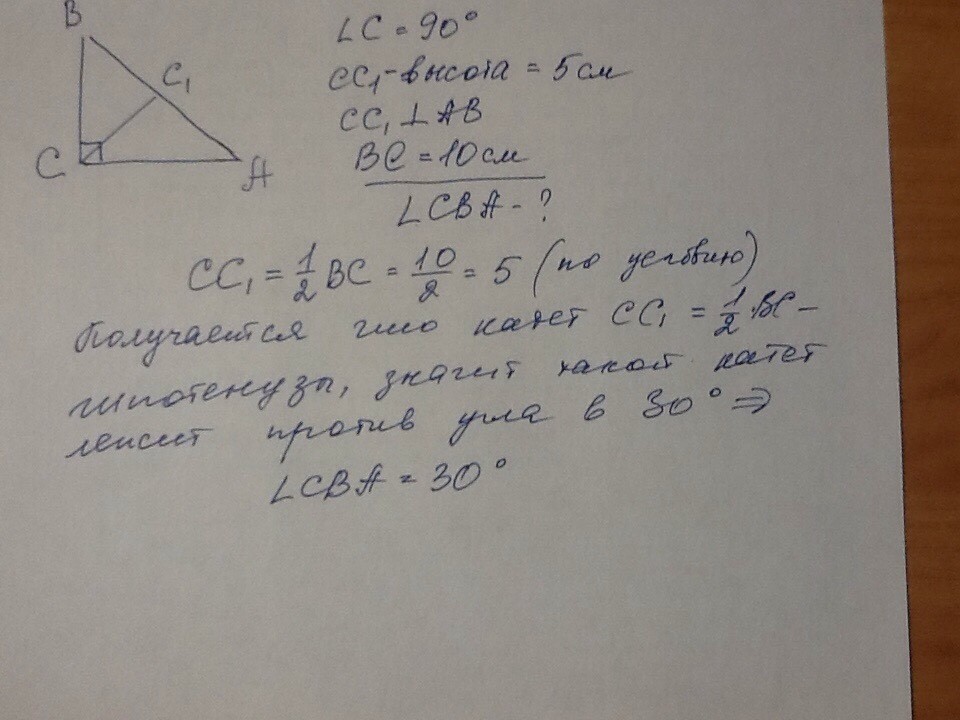 B
C₁
C
A
∠C = 90°
CC₁ - высота = 5 см
CC₁ ⊥ AB
BC = 10 см
∠CBA - ?
CC₁ = 1/2 BC = 10/2 = 5 (по условию)
Получается что катет CC₁ = 1/2 · BC -
гипотенузы, значит такой катет
лежит против угла в 30° ⇒
∠CBA = 30°